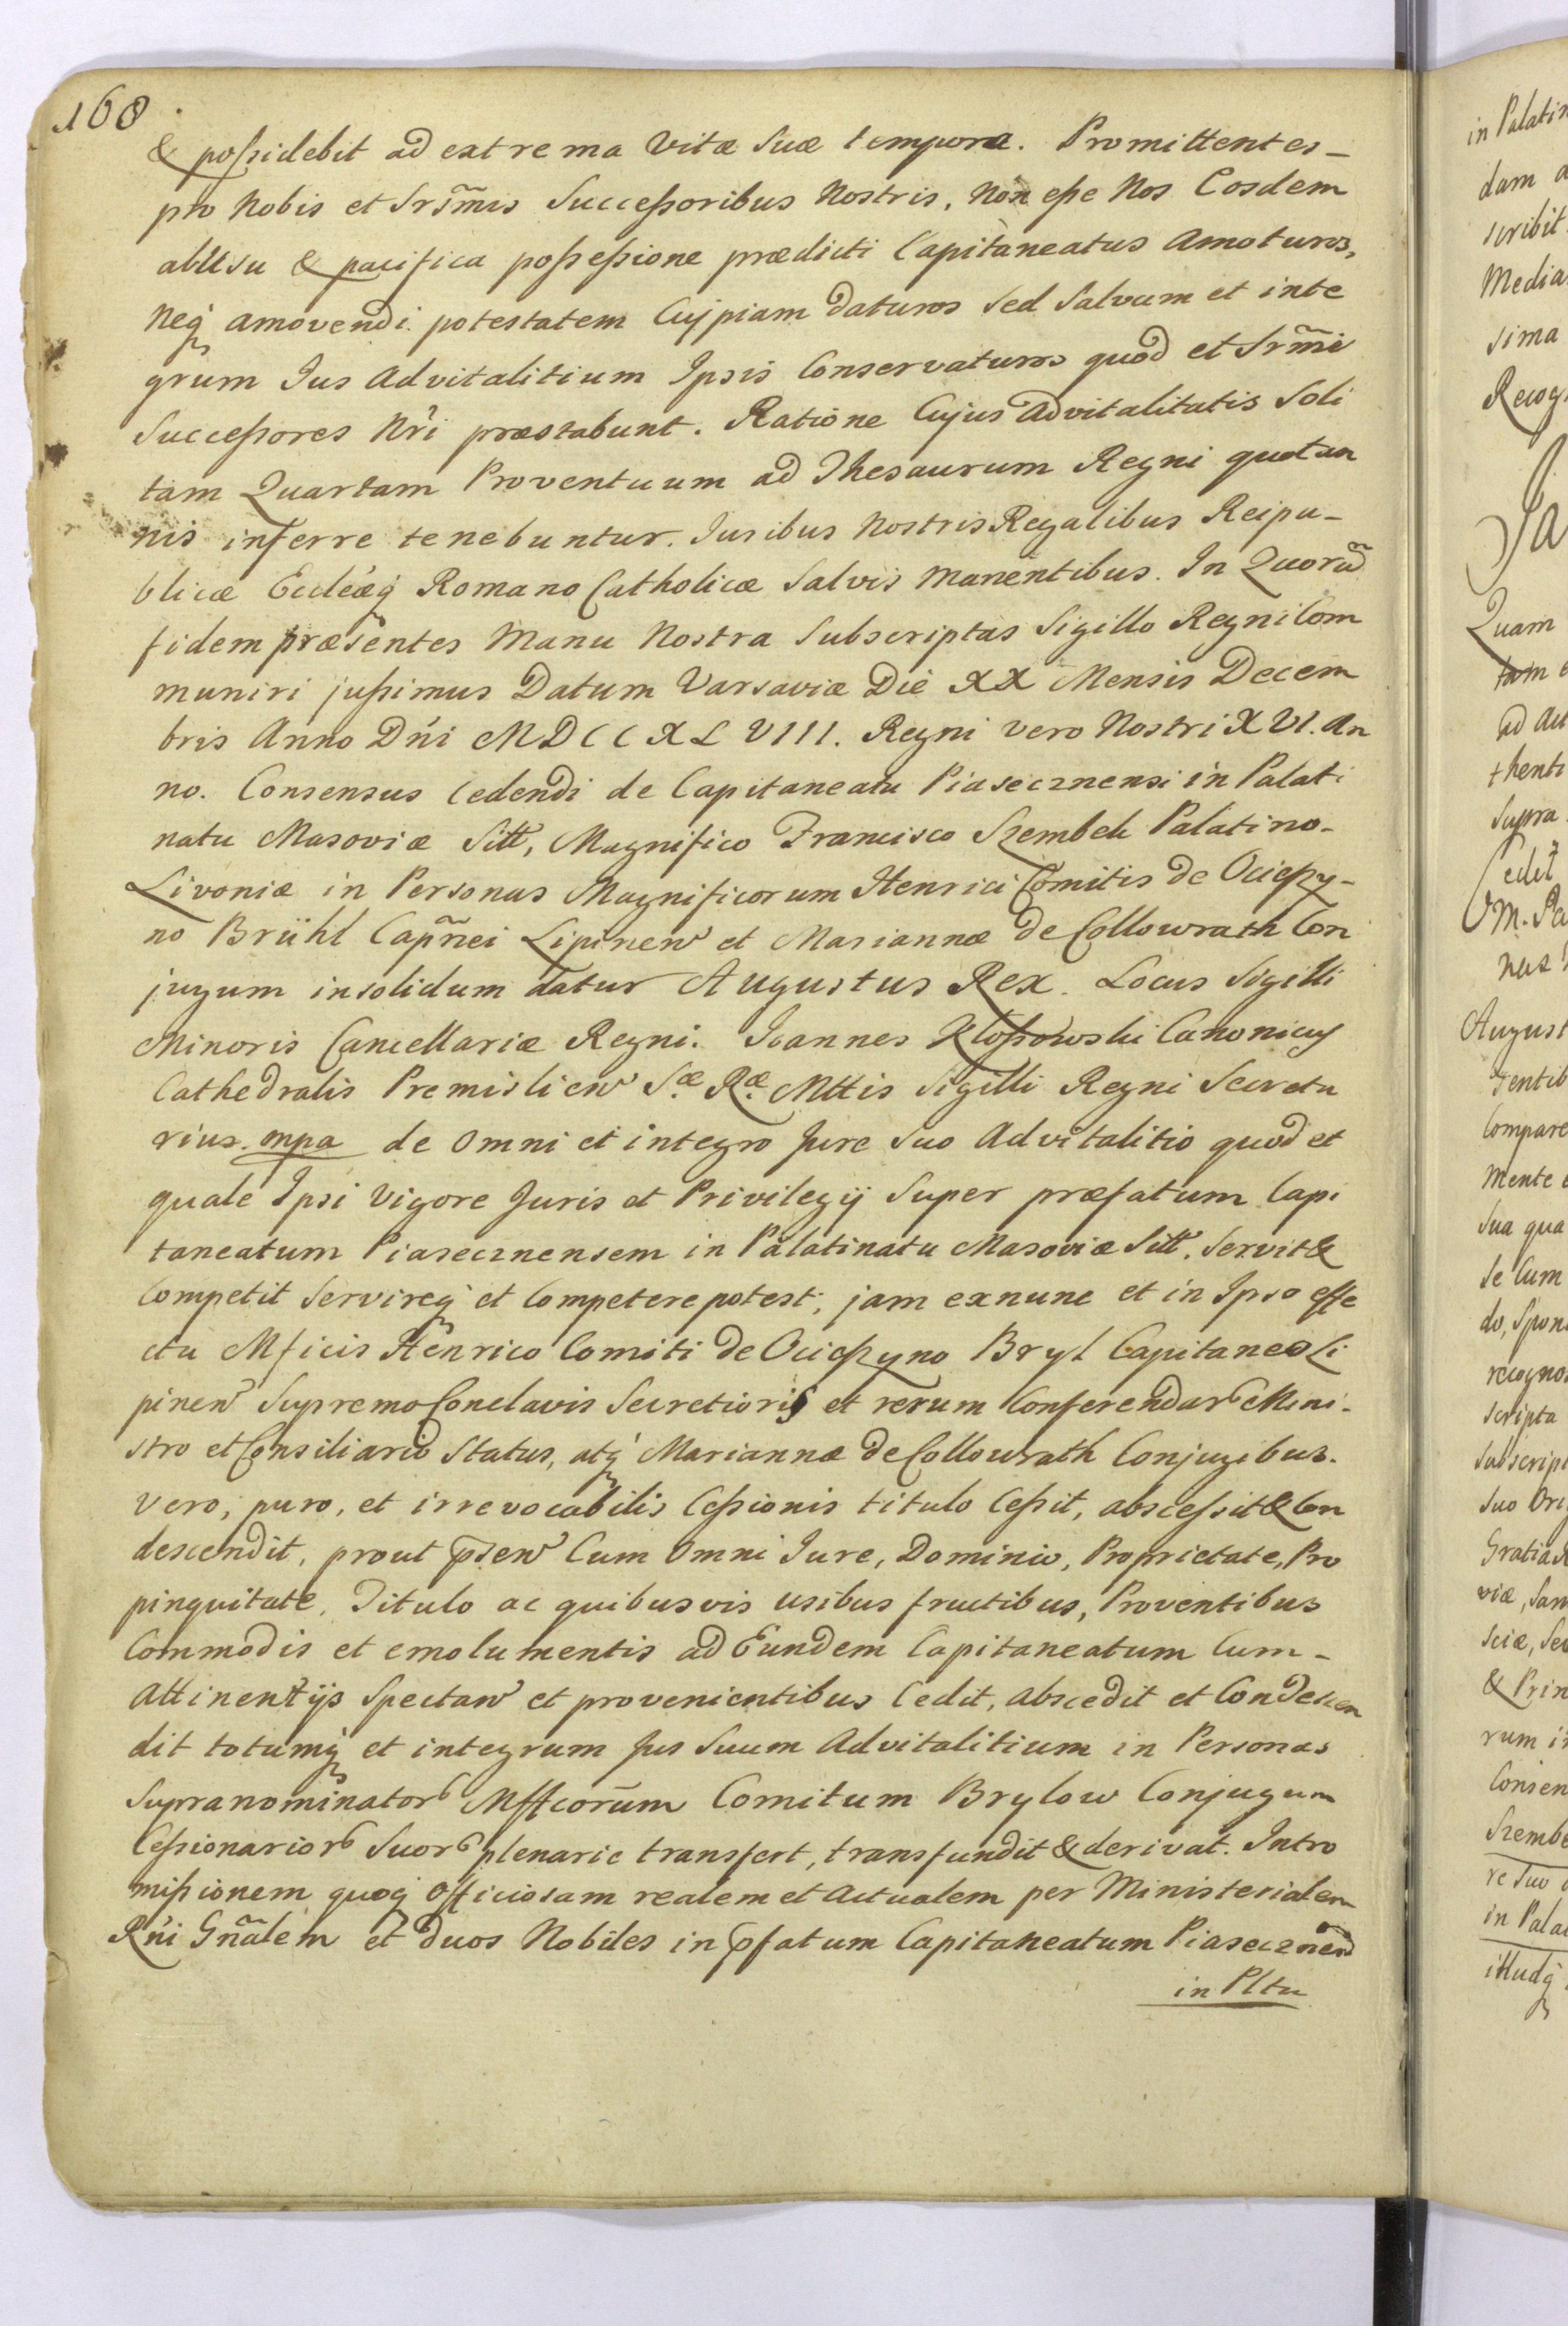 168
& possidebit ad extrema Vitæ Suæ tempora. Promittentes –
pro Nobis et Srs̃mis Successoribus Nostris, Non esse Nos Eosdem
ab Usu & pacifica possessione prædicti Capitaneatus amoturos,
Neq̃ amovendi potestatem Cujpiam daturos sed Salvum et inte
grum Jus Advitalitium Ipsis Conservaturos quod et Srm̃i
Successores Nr̃i præstabunt. Ratione Cujus advitalitatis Soli
tam Quartam Proventuum ad Thesaurum Regni quotan
nis inferre tenebuntur. Juribus Nostris Regalibus Reipu–
blicæ Eccleæq̃ Romano Catholicæ Salvis manentibus. In Quorũ
fidem præsentes Manu Nostra Subscriptas Sigillo Regni Com
muniri jussimus Datum Varsaviæ Die XX Mensis Decem
bris Anno Dńi MDCCXLVIII. Regni vero Nostri XVI. An
no. Consensus Cedendi de Capitaneatu Piasecznensi in Palati
natu Masoviæ Sitt, Magnifico Francisco Szembek Palatino –
Livoniæ in Personas Magnificorum Henrici Comitis de Ocieszy–
no Brühl Capñei Lipinen et Mariannæ de Collowrath Con
jugum insolidum datur Augustus Rex. Locus Sigilli
Minoris Cancellariæ Regni. Joannes Klossowski Canonicus
Cathedralis Premislien Sæ. Ræ. Mttis Sigilli Regni Secreta
rius. mpa de Omni et integro Jure Suo Advitalitio quod et
quale Ipsi Vigore Juris et Privilegij Super præfatum Capi
taneatum Piasecznensem in Palatinatu Masoviæ Sitt. Servit &
Competit Servireq̃ et Competere potest; jam exnunc et in Ipso effe
ctu Mficis Henrico Comiti de Ocieszyno Bryl Capitaneo Li
pinen Supremo Conclavis Secretioris et rerum Conferendar Mini–
stro et Consiliario Status, atq̃ Mariannæ de Collowrath Conjugibus.
Vero, puro, et irrevocabilis Cessionis titulo Cessit, abscessit & Con
descendit, prout p̃sen Cum Omni Jure, Dominio, Proprietate, Pro
pinquitate, Titulo ac quibusvis usibus fructibus, Proventibus
Commodis et emolumentis ad Eundem Capitaneatum Cum –
Attinentijs Spectan et provenientibus Cedit, abscedit et Condescen
dit totumq̃ et integrum Jus Suum Advitalitium in Personas
Supranominator Mffcorum Comitum Brylow Conjugum
Cessionarior Suor plenarie transfert, transfundit & derivat. Intro
missionem quoq̃ Officiosam realem et Actualem per Ministerialem
Rńi Gñalem et duos Nobiles in p̃fatum Capitaneatum Piaseczneñ
in Pltu
in Palatin
dam
scribit
Media
sima
Recog
Ja
Quam
tam
ad Act
thenti
Supra
Cedit
M. Pa
nas
August
sentib
Compare
mente
Sua qua
se Cum
do, Spon
recogno
scripta
subscript
suo Ori
Gratia
viæ, Sam
sciæ,
& Prin
rum in
Consen
Szembe
re suo
in Palat
illudq̃